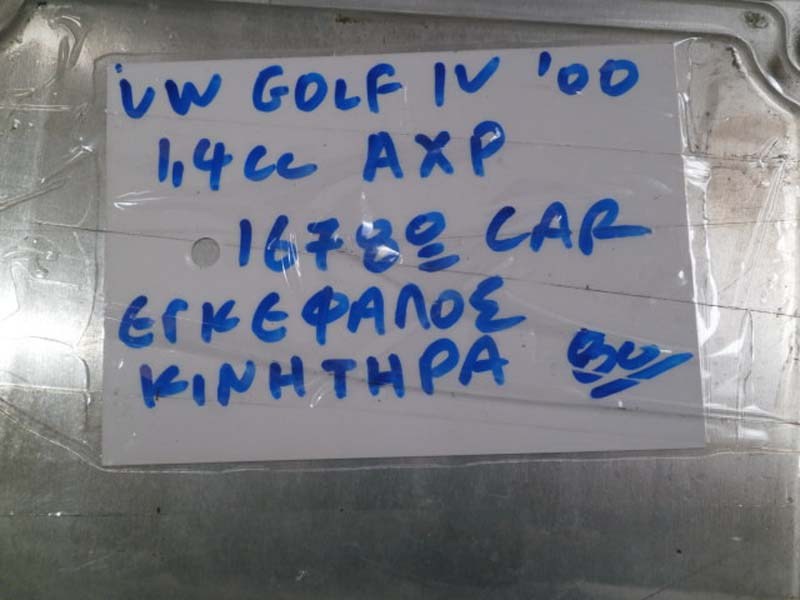 VW GOLF IV '00
1,4cc AXP
16780 CAR
ΕΓΚΕΦΑΛΟΣ
ΚΙΝΗΤΗΡΑ